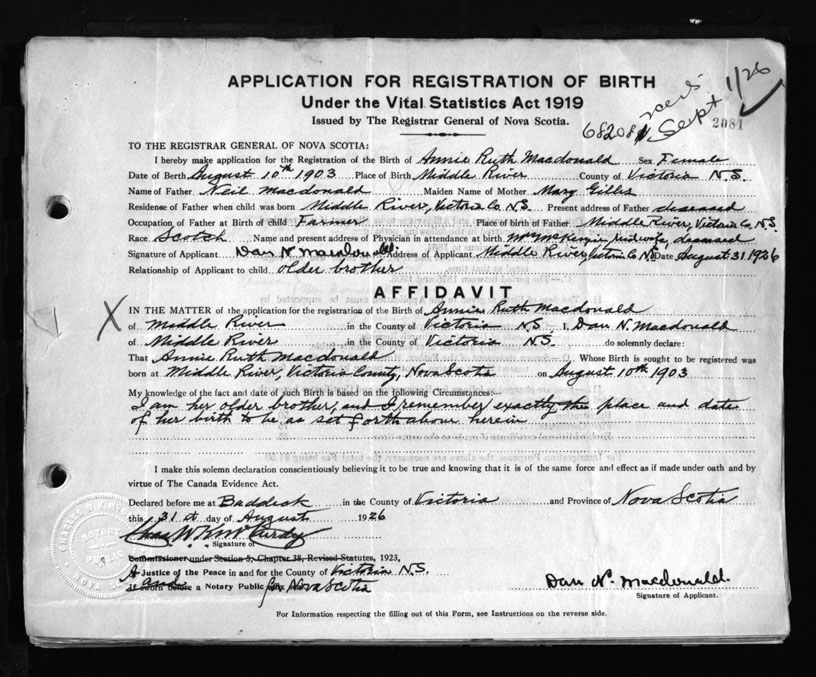 APPLICATION FOR REGISTRATION OF BIRTH
Under the Vital Statistics Act 1919
Issued by The Registrar General of Nova Scotia.
Sept 1/26
2081
TO THE REGISTRAR GENERAL OF NOVA SCOTIA:
I hereby make application for the Registration of the Birth of Annie Ruth Macdonald Sex Female
Date of Birth August 10th 1903 Place of Birth Middle River County of Victoria N.S.
Name of Father Neil Macdonald Maiden Name of Mother Mary Gillis
Residense of Father when child was born Middle River, Victoria Co. N.S. Present address of Father deceased
Occupation of Father at Birth of Child Farmer Place of birth of Father Middle River, Victoria Co. N.S.
Race Scotch Name and present address of Physician in attendance at birth midwife, deceased
Signature of Applicant Dan N. Macdonald Address of Applicant Middle River, Victoria Co. N.S. Date August 31 1926
Relationship of Applicant to child older brother
AFFIDAVIT
X
IN THE MATTER of the application for the registration of the Birth of Annie Ruth Macdonald
of Middle River in the County of Victoria N.S. I, Dan N. Macdonald
of Middle River in the County of Victoria N.S. do solemnly declare:
That Annie Ruth Macdonald Whose Birth is sought to be registered was
born at Middle River, Victoria County, Nova Scotia on August 10th 1903
My knowledge of the fact and date of such Birth is based on the following Circumstances:—
I am her older brother, and I remember exactly the place and date
of her birth to be as set forth above herein
I make this solemn declaration conscientiously believing it to be true and knowing that it is of the same force and effect as if made under oath and by
virtue of The Canada Evidence Act.
Declared before me at Baddeck in the County of Victoria and Province of Nova Scotia
this 31st day of August 1926
Signature of
Commissioner under Section 5, Chapter 38, Revised Statutes, 1923,
A Justice of the Peace in and for the County of Victoria N.S.
If sworn before a Notary Public for Nova Scotia
and
Dan N. Macdonald.
Signature of Applicant.
For Information respecting the filling out of this Form, see Instructions on the reverse side.